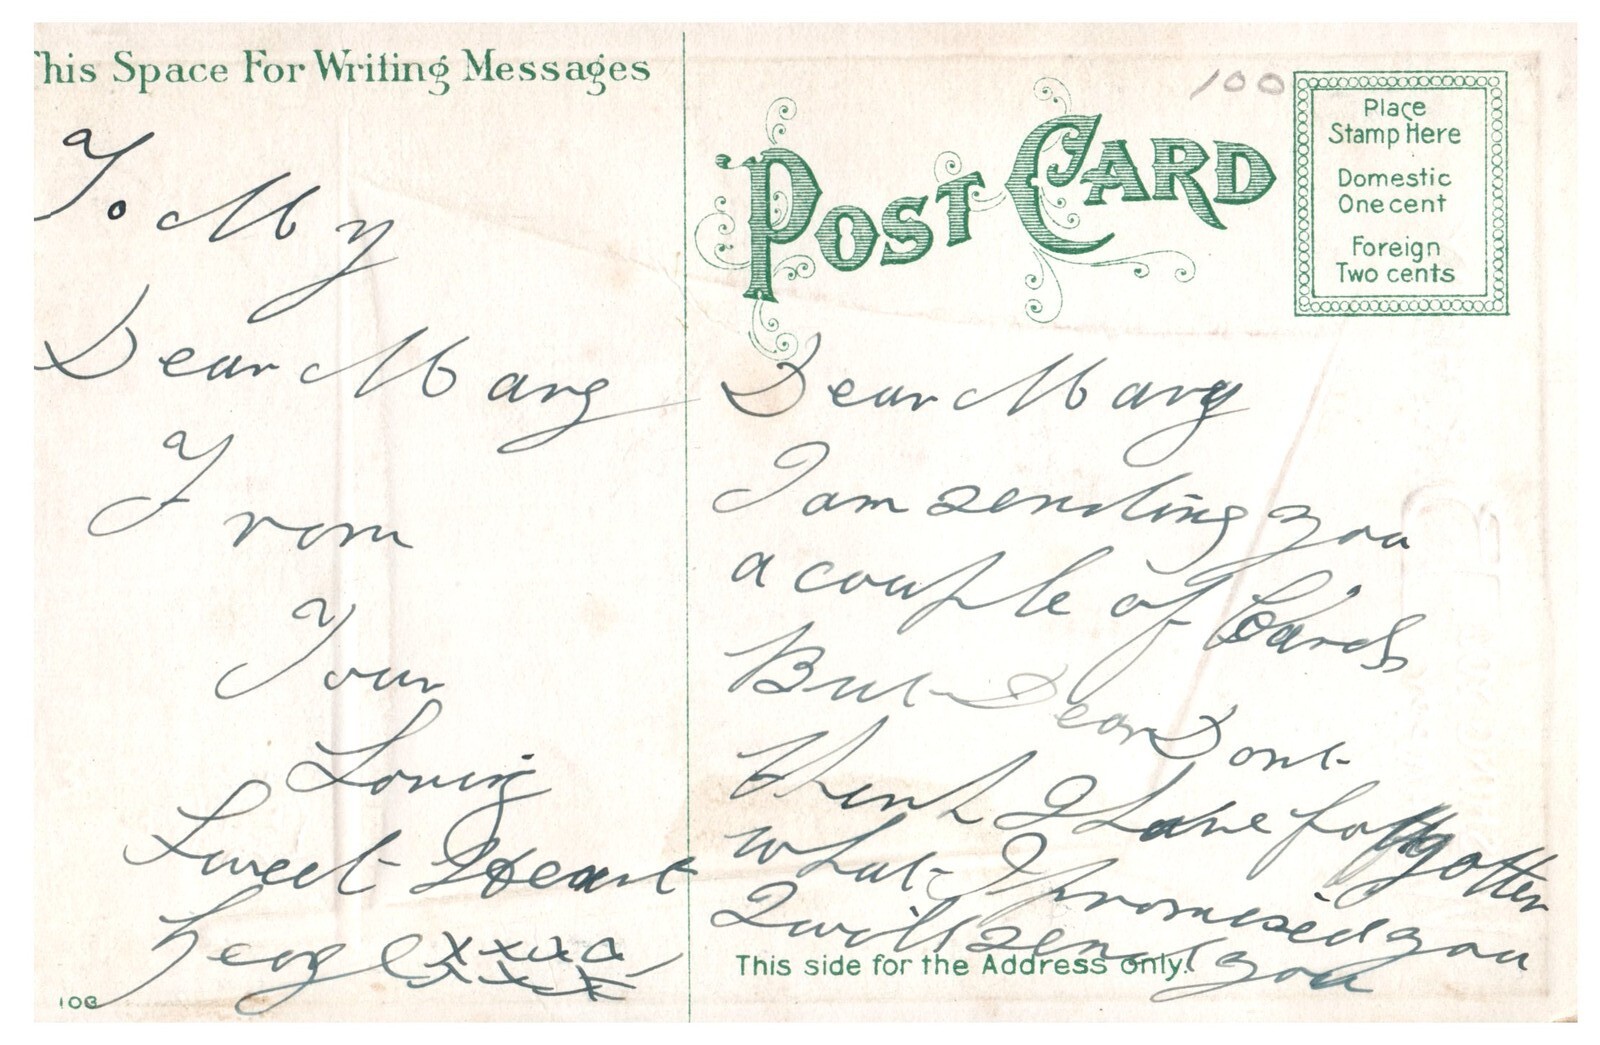 This Space For Writing Messages
To My
Dear Mary
From
Your
Loving
Sweet Heart
George xxxx
xxxx
108
POST CARD
100
Place
Stamp Here
Domestic
One cent
Foreign
Two cents
Dear Mary
I am sending you
a couple of Cards
But Dear Dont
think I have forgotten
what I promised you
I will send you
This side for the Address only.